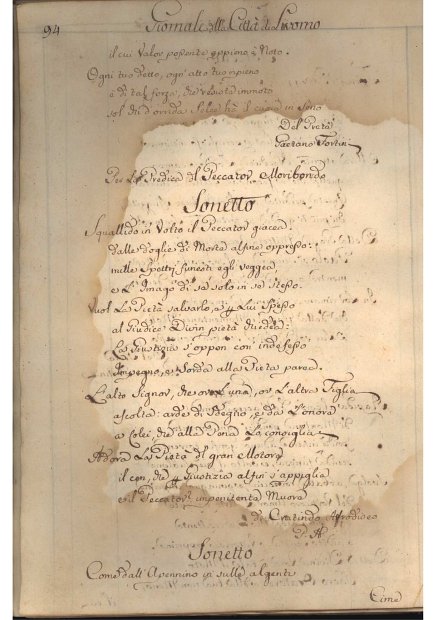 94
Giornale della Città di Livorno
il cui Valor possente appieno è Noto.
Ogni tuo detto, ogn' atto tuo ripieno
è di tal forza, che
sol di d'orrida Selce hà il cuore in seno
Del Prete
Gaetano Fortini
Per La Predica il Peccator Moribondo
Sonetto
Squallido in Volto il Peccator giacea
Dalle doglie di Morte alfine oppresso:
mille Spettri funesti egli veggea
e L'Imago di se solo in se stesso.
Vuol La Pietà salvarlo, e Lui Spesso
al Giudice Divin pietà chiedea:
La Giustizia s'oppon con indefesso
Impegno, e Sorda alla Pietà parea.
L'alto Signor, che or L'una, or L'altra Figlia
ascolta: arde di Sdegno, e dà L'onore
a Colei, che alla Pena Lo consiglia
Adora La Pietà del gran Motore
il cen, che Giustizia alfin s'appiglia
e il Peccator impenitente Muore
di Cratindo Afrodiseo
P. A.
Sonetto
Come dall' Apennino in sulle algenti
Cime